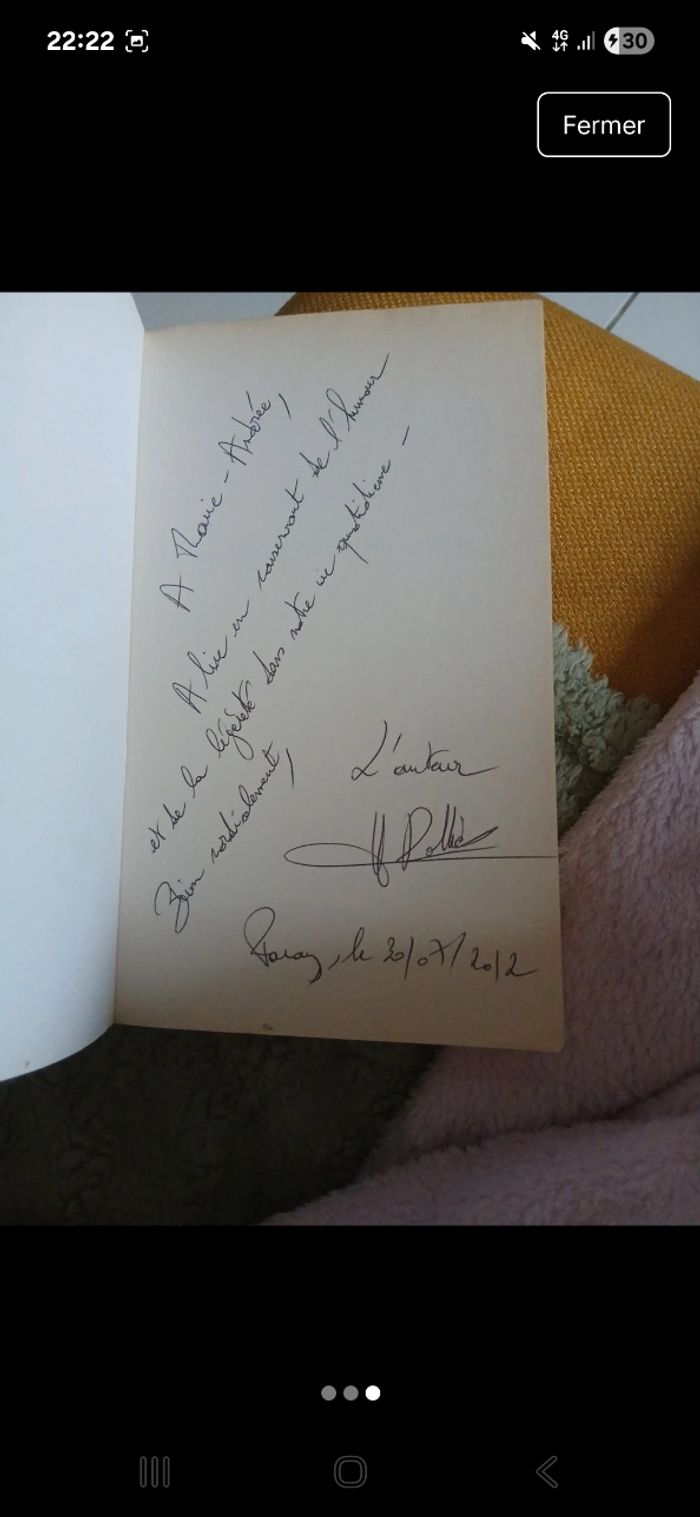 22:22
4G
30
Fermer
A Marie-Andrée,
A lire en conservant de l'humour
et de la légèreté dans notre vie quotidienne -
Bien cordialement,
L'auteur
le 30/07/2012